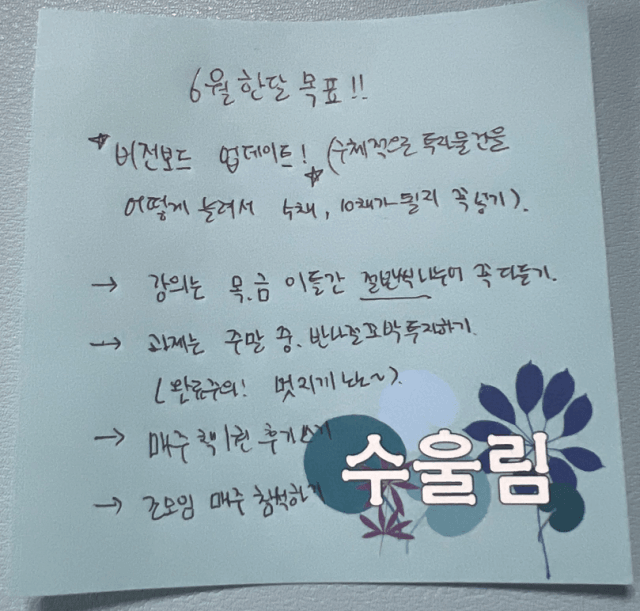 6월 한달 목표!!
비전보드 업데이트! (구체적으로 투자물건을
어떻게 늘려서 5채, 10채가 될지 꼭 넣기).
→ 강의는 목.금 이틀간 절반씩 나누어 꼭 다듣기.
→ 과제는 주말 중. 반나절 꼬박 투자하기.
(완료주의! 멋지게 노노~).
→ 매주 책1권 후기쓰기
→ 조모임 매주 참석하기
수울림